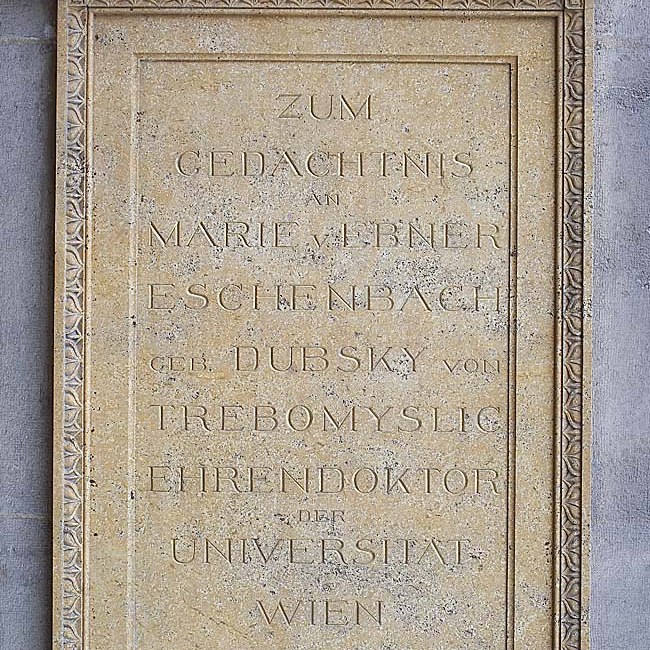 ZUM
GEDÄCHTNIS
AN
MARIE v EBNER
ESCHENBACH
GEB. DUBSKY VON
TREBOMYSLIC
EHRENDOKTOR
DER
UNIVERSITÄT
WIEN